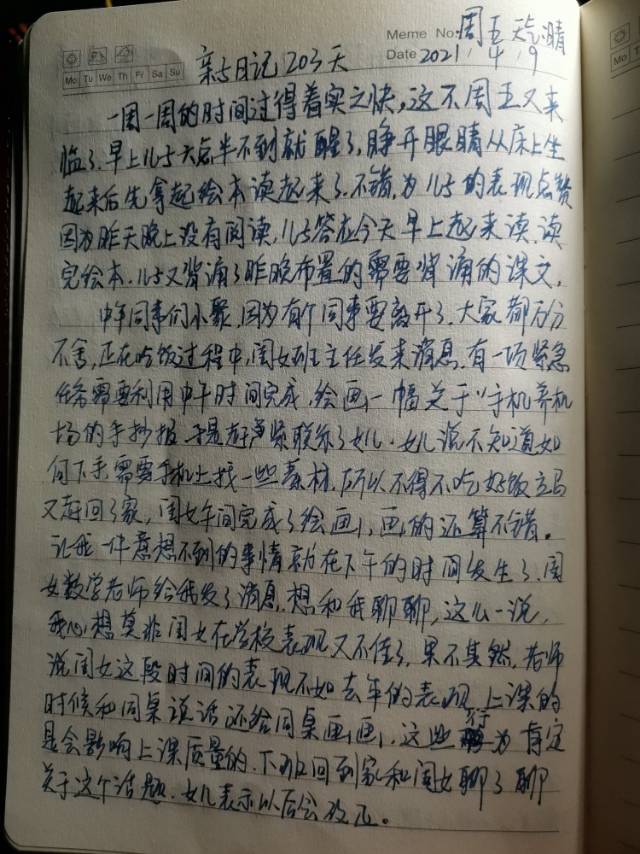 Memo No. 周五 天气:晴
Date 2021 / 4 / 9
Mo Tu We Th Fr Sa Su
亲子日记203天
一周一周的时间过得着实之快,这不周五又来
临了.早上儿子六点半不到就醒了,睁开眼睛从床上坐
起来后先拿起绘本读起来了.不错,为儿子的表现点赞
因为昨天晚上没有阅读,儿子答应今天早上起来读.读
完绘本.儿子又背诵了昨晚布置的需要背诵的课文.
中午同事们小聚,因为有个同事要离开了.大家都万分
不舍,正在吃饭过程中,闺女班主任发来消息.有一项紧急
任务需要利用中午时间完成,绘画一幅关于"手机养机
场的手抄报.于是赶紧联系了女儿.女儿说不知道如
何下手.需要手机上找一些素材.所以不得不吃好饭立马
又赶回了家,闺女午间完成了绘画,画的还算不错。
让我一件意想不到的事情就在下午的时间发生了.闺
女数学老师给我发了消息,想和我聊聊,这么一说,
我心想莫非闺女在学校表现又不佳了,果不其然,老师
说闺女这段时间的表现不如去年的表现.上课的
时候和同桌说话还给同桌画画,这些行为肯定
是会影响上课质量的.下班回到家和闺女聊了聊
关于这个话题.女儿表示以后会改正。